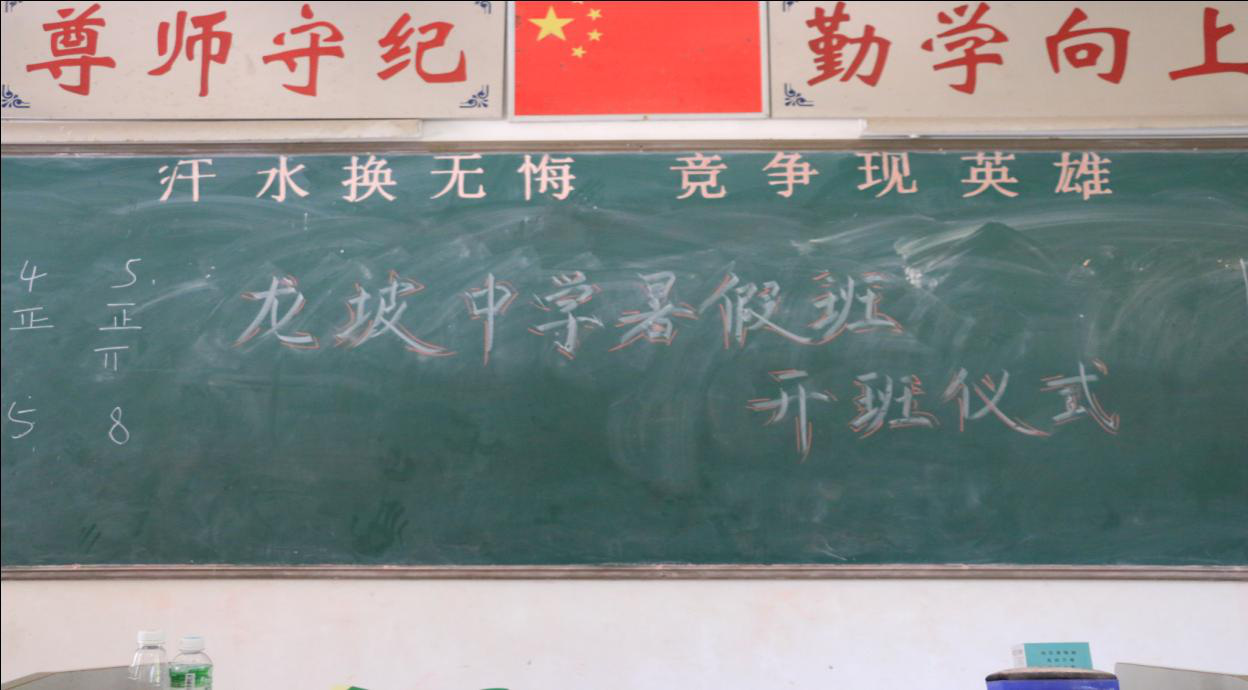 尊师守纪
勤学向上
汗水换无悔 竞争现英雄
龙坡中学暑假班
开班仪式
4 5
正 正
5 8